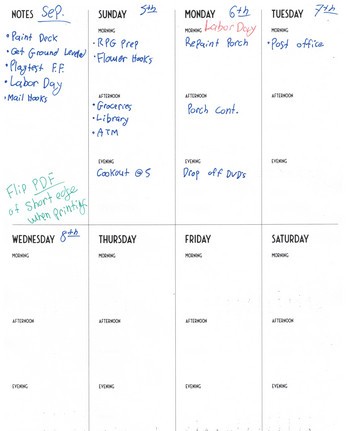 NOTES Sep.
• Paint Deck
• Get Ground Leveled
• Playtest F.F.
• Labor Day
• Mail Hooks
Flip PDF
at short edge
when printing
SUNDAY 5th
MORNING
• RPG Prep
• Flower Hooks
AFTERNOON
• Groceries
• Library
• ATM
EVENING
Cookout @5
MONDAY 6th
Labor Day
MORNING
Repaint Porch
AFTERNOON
Porch Cont.
EVENING
Drop off DVDs
TUESDAY 7th
MORNING
• Post office
AFTERNOON
EVENING
WEDNESDAY 8th
MORNING
AFTERNOON
EVENING
THURSDAY
MORNING
AFTERNOON
EVENING
FRIDAY
MORNING
AFTERNOON
EVENING
SATURDAY
MORNING
AFTERNOON
EVENING